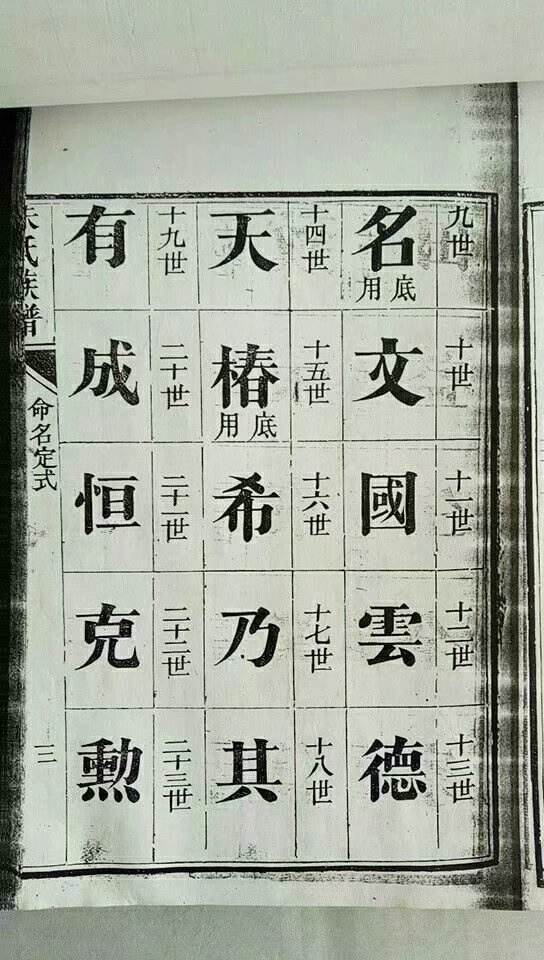 九世
名
底用
十世
文
十一世
國
十二世
雲
十三世
德
十四世
天
十五世
椿
底用
十六世
希
十七世
乃
十八世
其
十九世
有
二十世
成
二十一世
恒
二十二世
克
二十三世
勲
氏族譜
命名定式
三